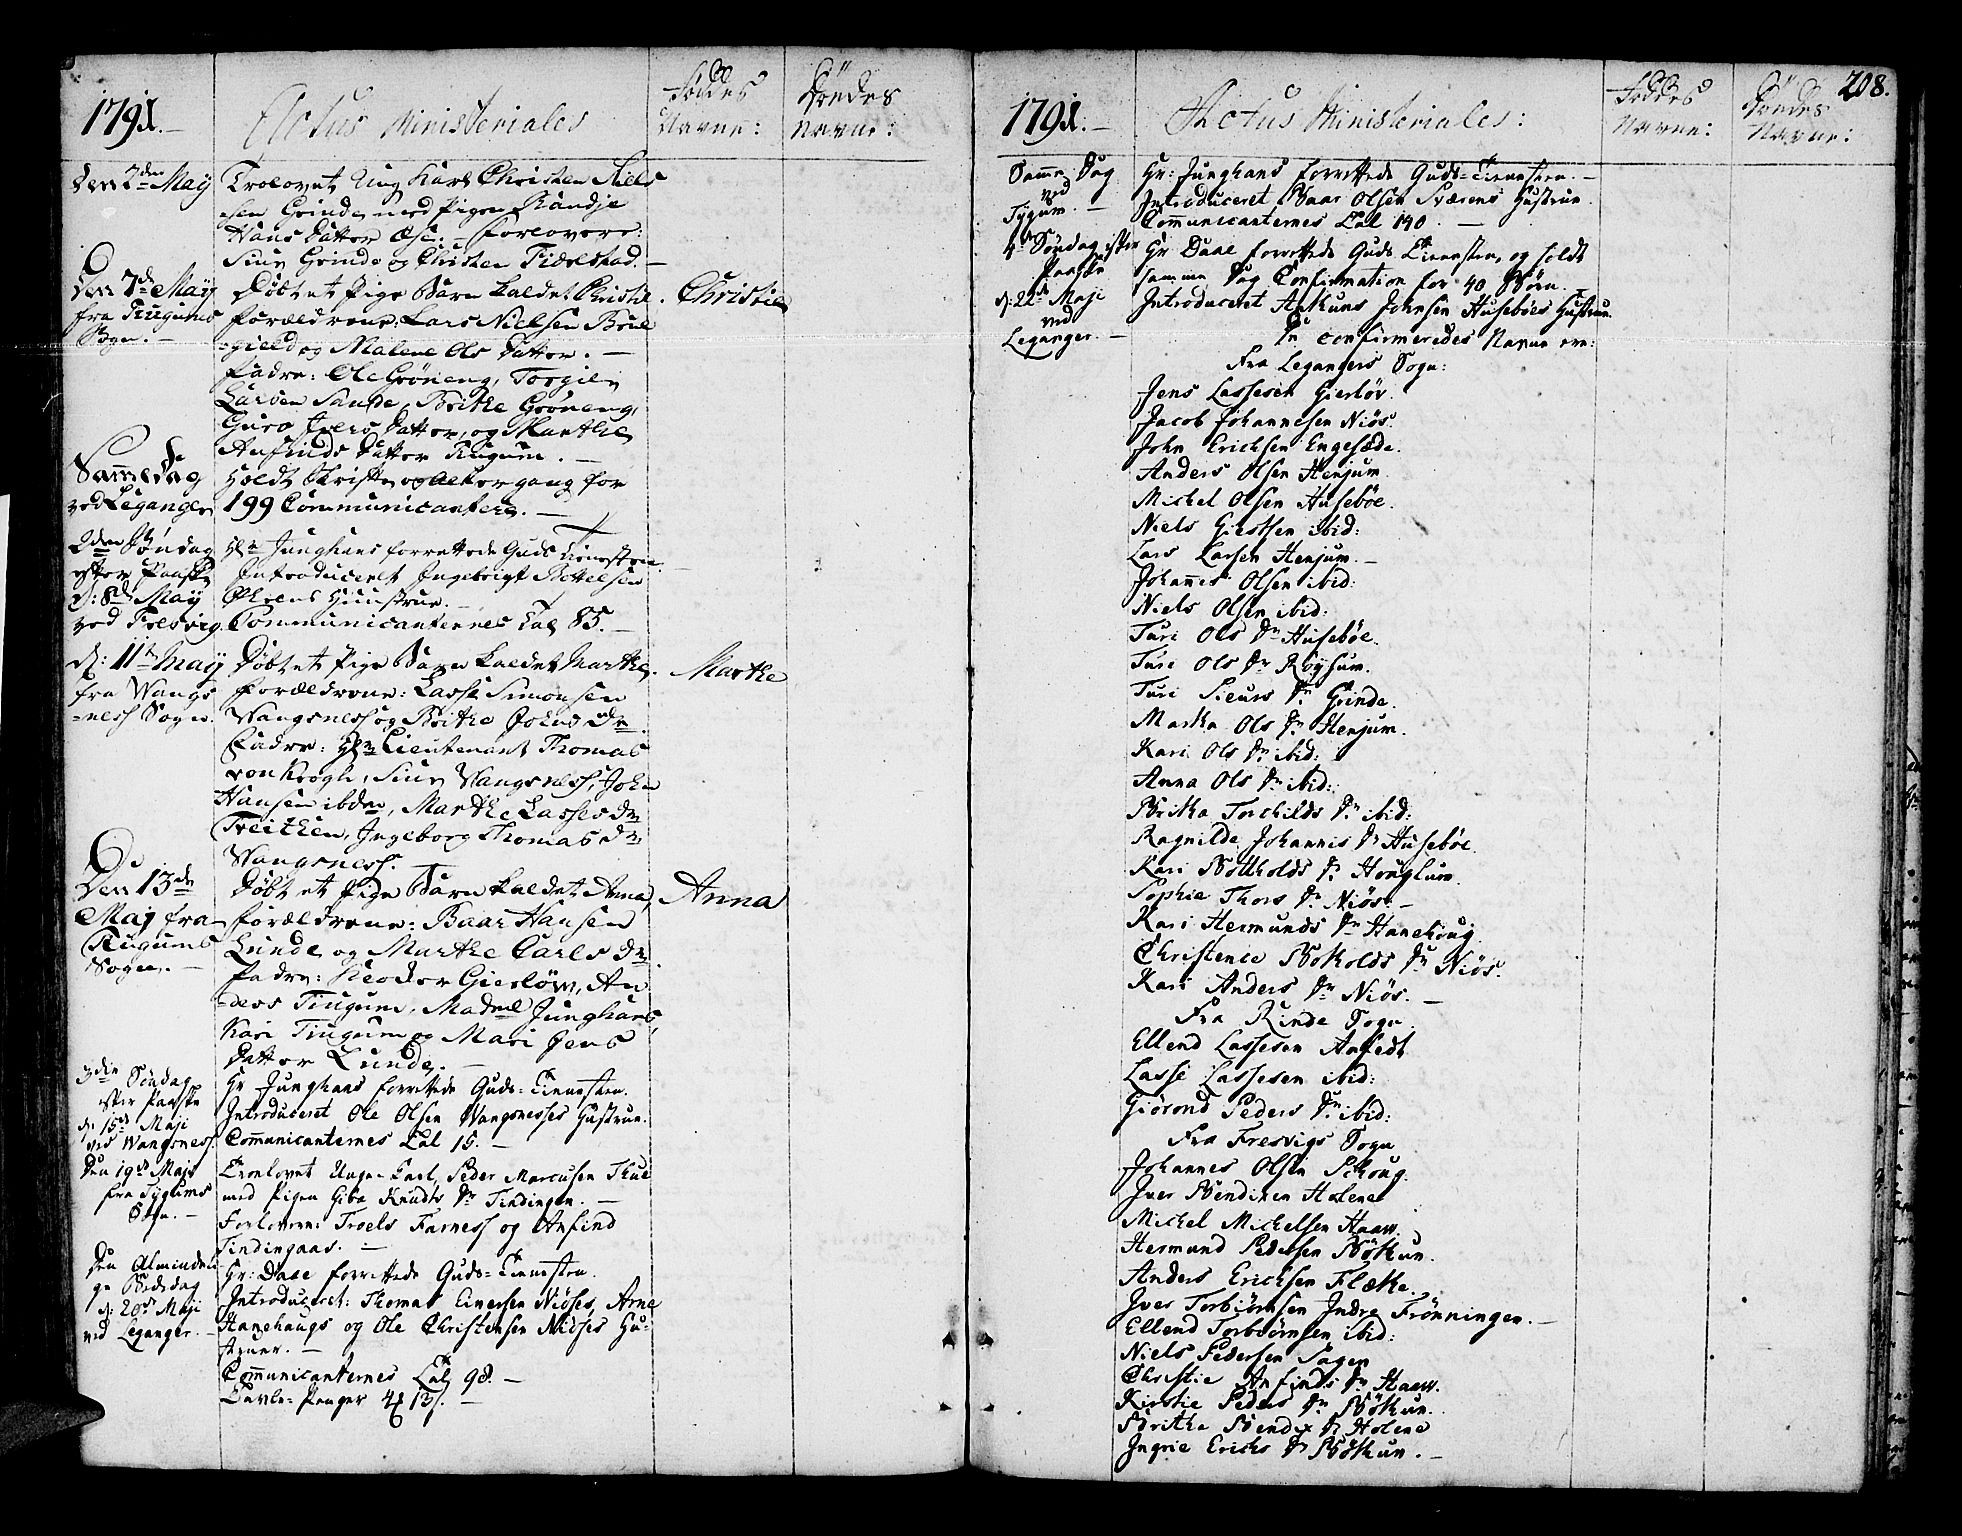 1791.
Actus Ministeriales
Föddes Navne:
Döedes Navne:
den 2den May
Trolovet Ung Karl Christen Niels
sen Grinde med Pigen Randje
Hans Datter Ese. Forlovere:
Siur Grinde og Christen Fieelstad.
Den 7de May
fra Tiugums
Sogn.
Döbt et Pige Barn kaldet Christie.
Christie
Forældrene: Lars Nielsen Brue
gield og Malene Ols Datter.
Fadre: Ole Gröneng, Torgiel
Larsen Sande, Brithe Gröneng,
Guro Ivers Datter, og Marthe
Anfinds Datter Tiugum.
Samme Dag
ved Leganger
Holdt Skrifte og Altergang for
199 Communicantere.
2den Söndag
efter Paaske
d: 8de May
ved Fresvig.
Hr. Junghans forrettede Guds Tieneste
Introduceret Ingebrigt Bottelsen
Öhrens Huustrue.
Communicanternes Tal 85.
d: 11te May
fra Wangs
-ness Sogn.
Döbt et Pige Barn kaldet Marthe.
Marthe
Forældrene: Lasse Simonsen
Wangsness og Brithe Johns Dr.
Fadre: Hr. Lieutenant Thomas
von Krogh, Siur Wangsness, John
Hansen ibdm, Marthe Lasses Dr
Freithen, Ingeborg Thomas Dr.
Wangsness.
Den 13de
Maj fra
Tiugums
Sogn.
Döbt et Pige Barn kaldet Anna,
Anna
Forældrene: Baar Hansen
Lunde og Marthe Carls Dr.
Fadre: Theodor Gierlöw, An
-ders Tiugum, Madme Junghans,
Kari Tiugum og Mari Jens
Datter Lunde.
3die Söndag
efter Paaske
d: 15de Maji
ved Wangsness.
Hr Junghans forrettede Guds-Tienesten.
Introduceret Ole Olsen Wangsnesses Hustrue.
Communicanternes Tal 15.
Den 19de Maji
fra Tygums
Sogn.
Trolovet Unge Karl, Peder Marcusen Thue
med Pigen Giba Knudts Dr Tindingen.
Forlovere: Troels Farness og Anfind
Tindingaas.
Den Alminde
ge Bededag
d: 20de Maji
ved Leganger.
Hr: Daae forrettede Guds-Tienesten.
Introduceret: Thomas Einersen Niöses, Arne
Hanehaugs og Ole Christensen Niöses Hu-
struer.
Communicanternes Tal 98.
Tavle-Penger 4 13
1791.
Actus Ministeriales:
Föddes Navne:
Döedes Navne:
208.
Samme Dag
ved
Tygum.
Hr: Junghans forrettede Guds-Tienesten.
Introduceret Baar Olsen Sværens Hustrue.
Communicanternes Tal 140.
4de Söndag efter
Paaske
d: 22de Maji
ved
Leganger.
Hr Daae forrettede Guds Tienesten, og holdt
samme Dag Confirmation for 40 Börn.
Introduceret Ankuns Johnsen Huseböes Hustrue.
De confirmeredes Navne ere:
Fra Legangers Sogn:
Jens Lassesen Gierlöv.
Jacob Johannesen Niös.
John Erichsen Engesæde.
Anders Olsen Henjum.
Michel Olsen Huseböe.
Niels Giertsen ibid:
Lars Larsen Henjum.
Johannes Olsen ibid:
Niels Olsen ibid:
Turi Ols Dr Huseböe.
Turi Ols Dr Röysum.
Turi Sieurs Dr Grinde.
Martha Ols Dr Henjum.
Kari Ols Dr ibid:
Anna Ols Dr ibid:
Britha Torchilds Dr ibid:
Ragnilde Johannis Dr Huseböe.
Kari Bottholds Dr Houglum.
Sophie Thors Dr Niös.
Kari Hermunds Dr Hanehoug.
Christence Botholds Dr Niös.
Kari Anders Dr Niös.
Fra Rinde Sogn
Ellend Lassesen Anfedt
Lasse Lassesen ibid:
Giörond Peders Dr ibid:
Fra Fresvigs Sogn
Johannes Olsen Schoug.
Iver Bendixen Holene
Michel Michelsen Haaw.
Hermund Pedersen Böthun.
Anders Erichsen Flæthe.
Iver Torbiörnsen Indre Frönningen.
Ellend Torbiörnsen ibid:
Niels Pedersen Sagen
Christie Anfinds Dr Haaw.
Kirstie Peders Dr Böthun.
Britha Bendix Dr Holene
Ingrie Erichs Dr Böthun.